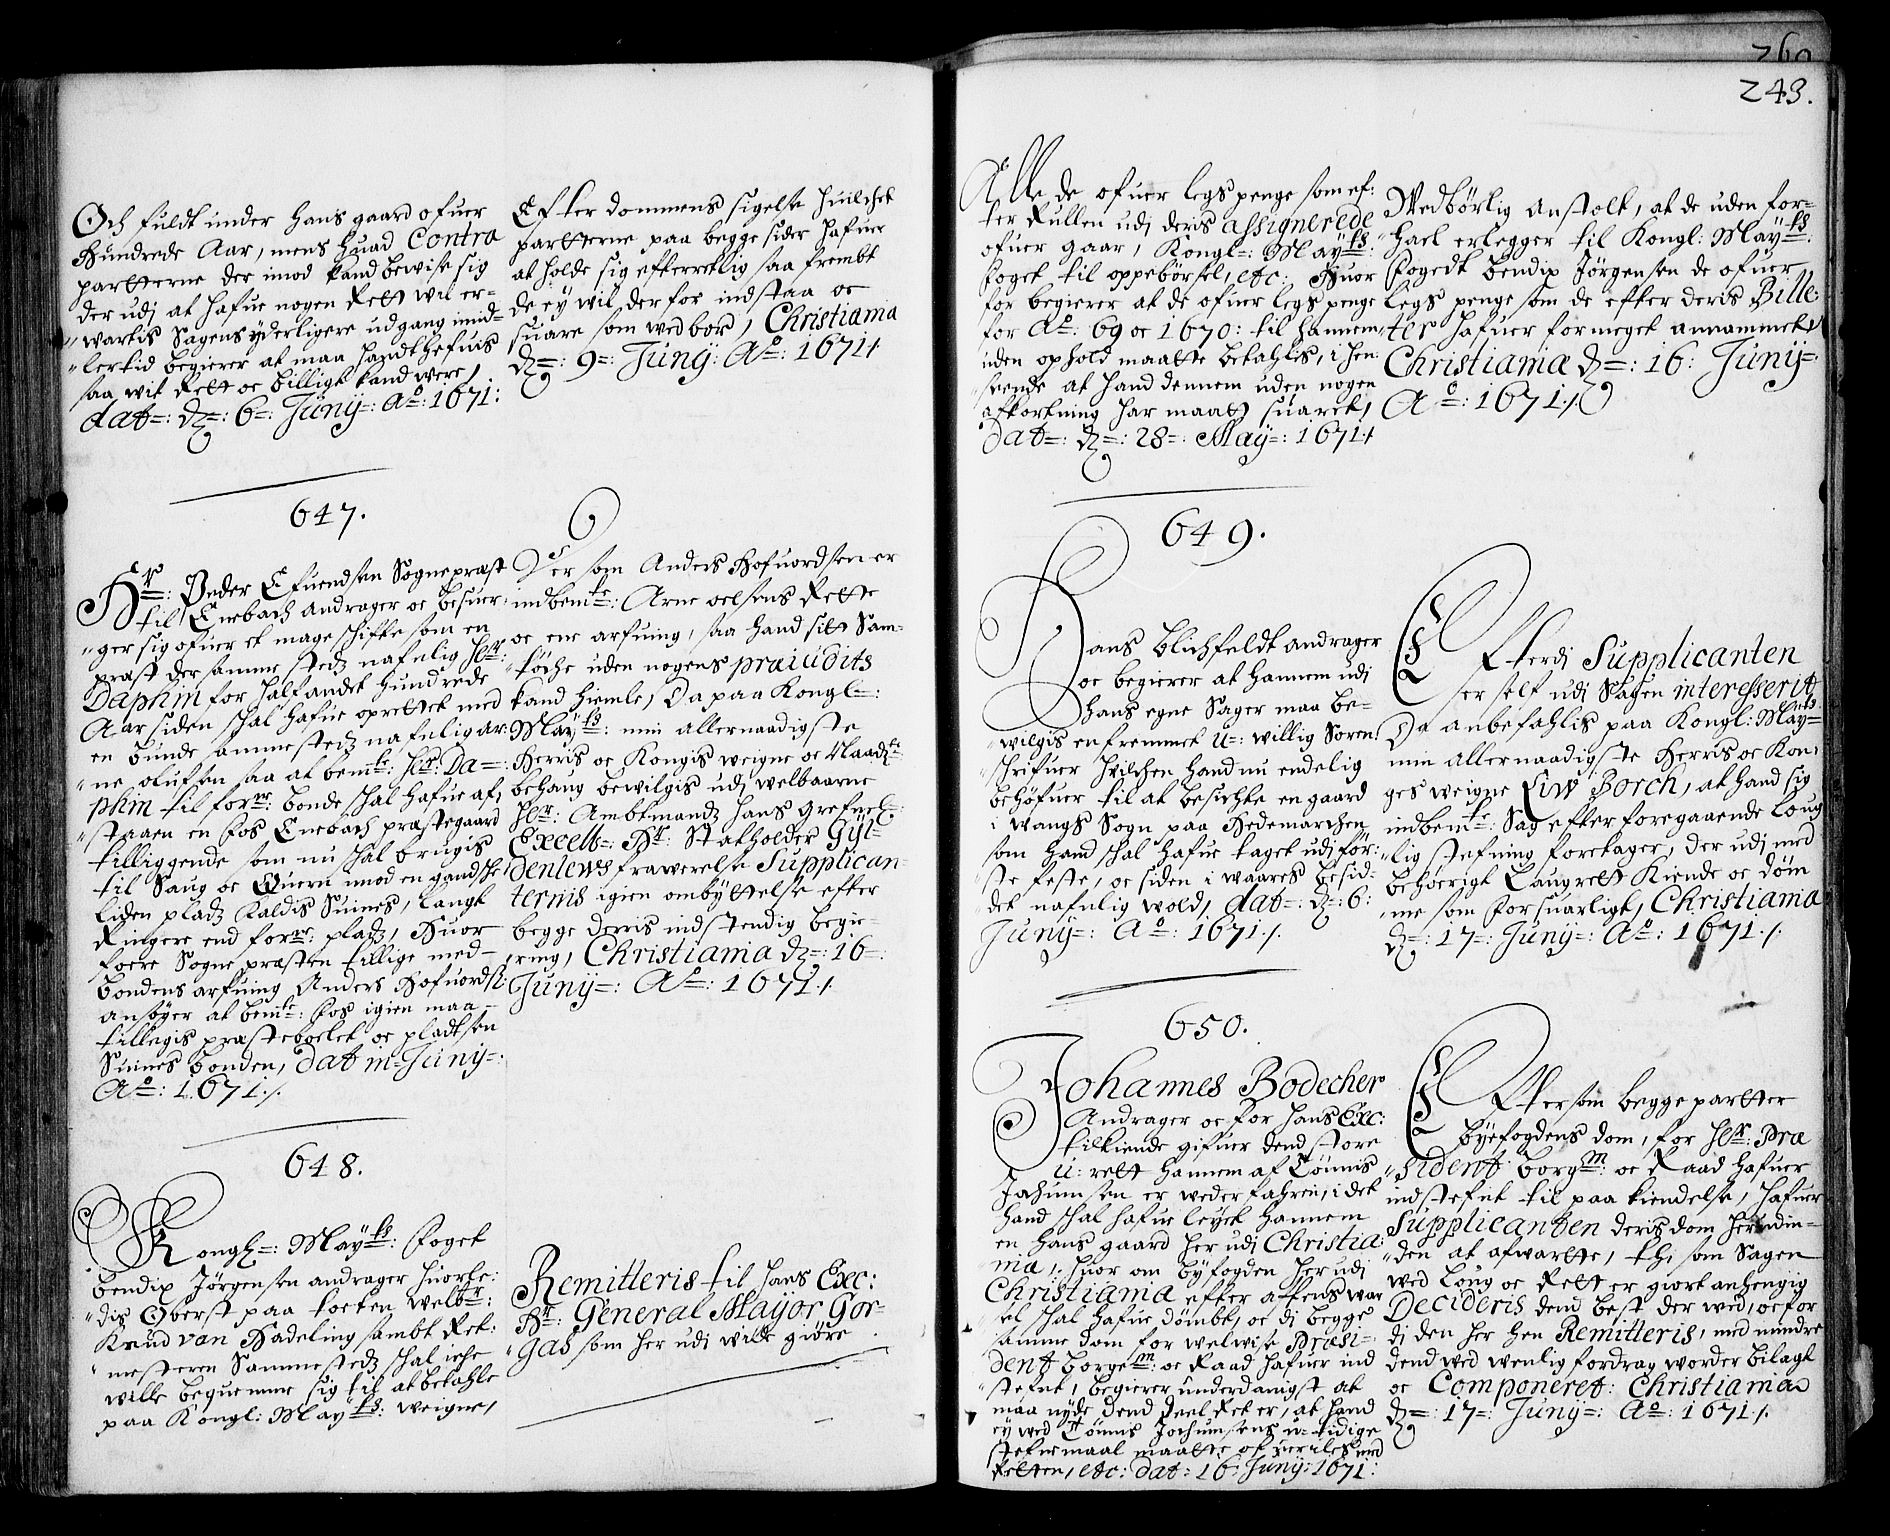 260
243.
Och fuldt under hans gaard ofuer
Hundrede Aar, mens huad Contra
partterne der imod kand bewise sig
der udj at hafue nogen Rett wil er-
wartis Sagens yderligere udgang imid-
lertid begierer at maa handthefuis
saa wit Rett oc billigt kand were,
dat=: dz=: 6=: Junÿ=: Ao=: 1671:
Efter dommens sigelse huilchet
partterne paa begge sider hafuer
at holde sig efterretlig saa frembt
de ey wil der for indstaa oc
suare som wed bör, Christiania
dz=: 9=: Junÿ: Ao=: 1671/
647.
Hr=: Peder Efuendsen Sognepræst
til Enebach andrager oc besuer-
ger sig ofuer et mageschifte som en
præst der samme stedz nafnlig Hr:
Daphin for halfandet hundrede
Aar siden schal hafue oprettet med
en bunde ammestedz nafnlig Ar-
ne olufsen saa at bemte: Hr: Da=:
phin til forne: bonde schal hafue af-
staaen en Fos Enebach præstegaard
tilliggende som nu schal brugis
til Saug oc Quern imod en gandsche
liden pladz Kaldis Suines, langt
Ringere end forne: pladz, Huor
fore Sogne præsten tillige med
bondens arfuing Anders Hofuordsen
ansöger at bemte: Fos igien maa
tillegis præsteboelet oc pladtsen
Suines bonden, dat in=Junÿ=:
Ao=: 1671./.
Der som Anders Hofuordsen er
indbemte=: Arne oelsens Rette
oc ene arfuing, saa hand sitt Sam-
töche uden nogens præiudits
kand hiemle, Da paa Kongl=:
Maÿts=: min allernaadigste
Herris oc Kongis weigne oc Naadz
behaug bewilgis udj welbaarne
Hr: Ambtmandz hans Grefuel=:
Excell=: Hr: Statholder Gÿl-
denlews frawerelse Supplican-
ternis igien ombyttelse efter
begge deris indstendig begie-
ring, Christiania dz=: 16=:
Junÿ=: Ao=: 1671./
648.
Kongl=: Maÿts=: Foget
Bendix Jörgensen andrager huorle-
dis Oberst paa Foeten welbr:
Knud van Hadeling sambt Ret-
mesteren Sammestedz schal iche
wille beqvemme sig til at betahle
paa Kongl: Maÿts: weigne,
Remitteris til hans Exc:
Hr: General Maÿor Gor-
gas som her udj wille giöre
Alle de ofuer legs penge som ef-
ter Rullen udj deris assignerede
ofuer gaar, Kongl=: Maÿts:
Foget til oppebörsel, etc: Huor
for begierer at de ofuer legs penge
for Ao=: 69 oc 1670: til hannem
uden ophold maatte betahlis, i hen-
seende at hand dennem uden nogen
afkortning har maatt suaret,
Dat=: dz=: 28=: Maÿ=: 1671/
Wedbörlig anstolt, at de uden for-
hael erlegger til Kongl: Maÿts:
Fogedt Bendix Jörgensen de ofuer
legs penge som de efter deris Bille-
ter hafuer formeget annammet
Christiania dz=: 16: Junÿ=:
Ao=: 1671./
649.
Hans Blichfeldt andrager
oc begierer at hannem udj
hans egne Sager maa be-
wilgis en fremmet U=: willig Soren-
schrifuer hvilchen hand nu endelig
behöfuer til at besichte en gaard
i Wangs Sogn paa Hedemarchen
som hand schal hafue taget udj för-
ste feste, oc siden i waares besid-
det nafnlig wold, dat=: dz=: 6:
Junÿ=: Ao=: 1671./.
Efterdi Supplicanten
er self udj Sagen interesserit
Da anbefahlis paa Kongl: Maÿts
min allernaadigste Herris oc Kon-
ges weigne Liw Borch, at hand sig
indbemte: Sag efter foregaaende Loug
lig stefning foretager, der udj med
behörigt Laugrett Kiende oc döm
me som forsuarligt, Christiania
dz=: 17=: Junÿ=: Ao=: 1671./.
650.
Johannes Bodecher
Andrager oc for hans Exc:
tilkiende gifuer dend store
U: rett hannem af Tönnis
Jochumsen er wederfahren, i det
hand schal hafue leyet hannem
en hans gaard her udj Christia-
nia, huor om byfogden her udj
Christiania efter attens war
el schal hafue dömbt, oc di begge
samme dom for welwise Præsi-
dent borgem: oc Raad hafuer ind
stefnt, begierer underdanigst at
maa nyde dend deel Ret er, at hand
ey wed Tönnis Jochumsens u=tidige
stefnemaal maatte ofueriles med
Retten, etc: dat: 16: Junÿ: 1671:
Eftersom begge partter
byefogdens dom, for Hr: Præ
sident borgm: oc Raad hafuer
indstefnt til paa kiendelse, hafuer
Supplicanten deris dom her udin-
den at afwartte, thj som Sagen
wed Loug oc Rett er giort anhengig
Decideris dend best der wed, oc for
di den her hen Remitteris, med mindre
dend wed wenlig fordrag worder bilagt
oc Componeret: Christiania
dz=: 17=: Junÿ=: Ao=: 1671/.